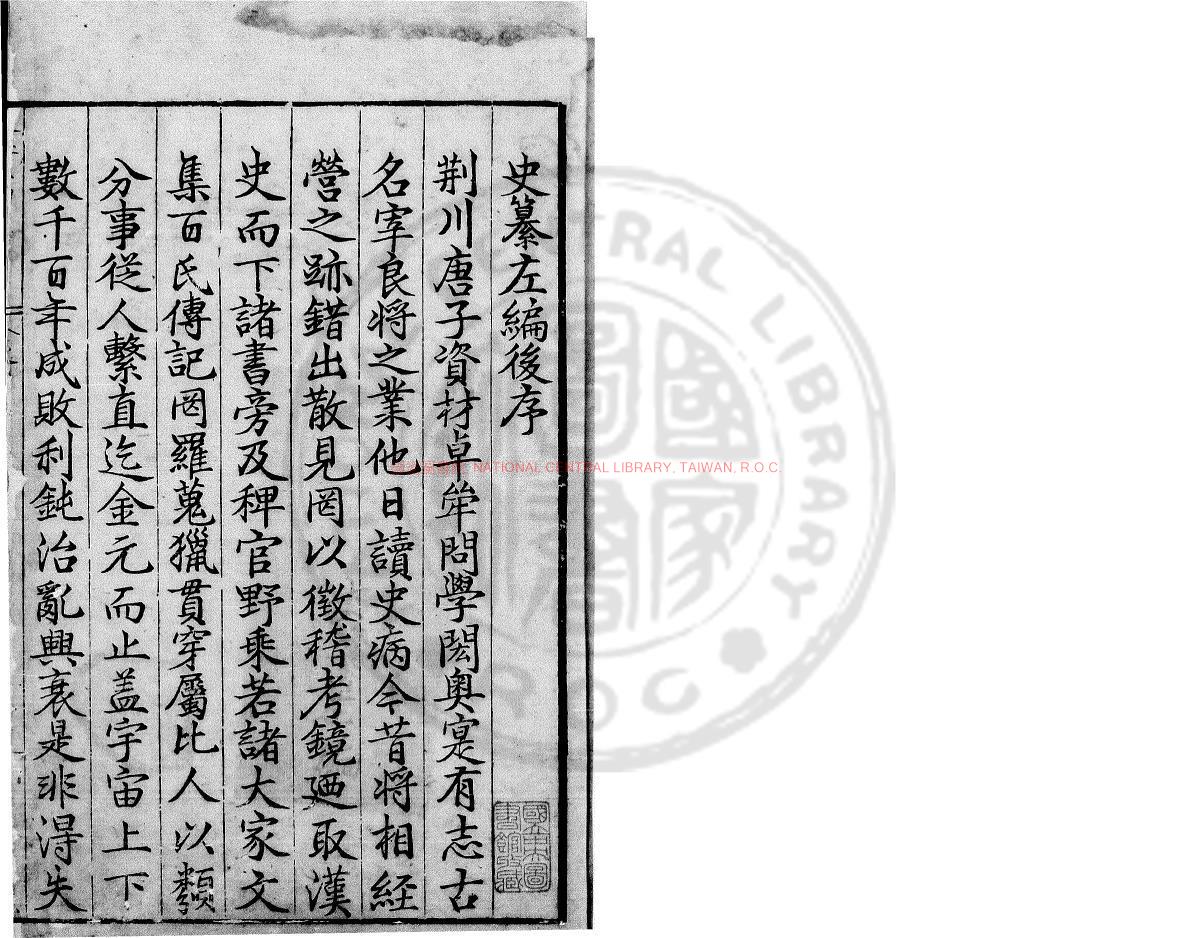 史纂左編後序
荆川唐子資材卓犖問學閎奥寔有志古
名宰良将之業他日讀史病今昔将相経
營之跡錯出散見罔以徵稽考鏡廼取漢
史而下諸書旁及稗官野乘若諸大家文
集百氏傳記罔羅蒐獵貫穿屬比人以類
分事從人繫直迄金元而止盖宇宙上下
數千百年成敗利鈍治亂興衰是非淂失
國家圖書館 NATIONAL CENTRAL LIBRARY, TAIWAN, R.O.C.
CENTRAL LIBRARY
R.O.C.
國立中央圖書館收藏